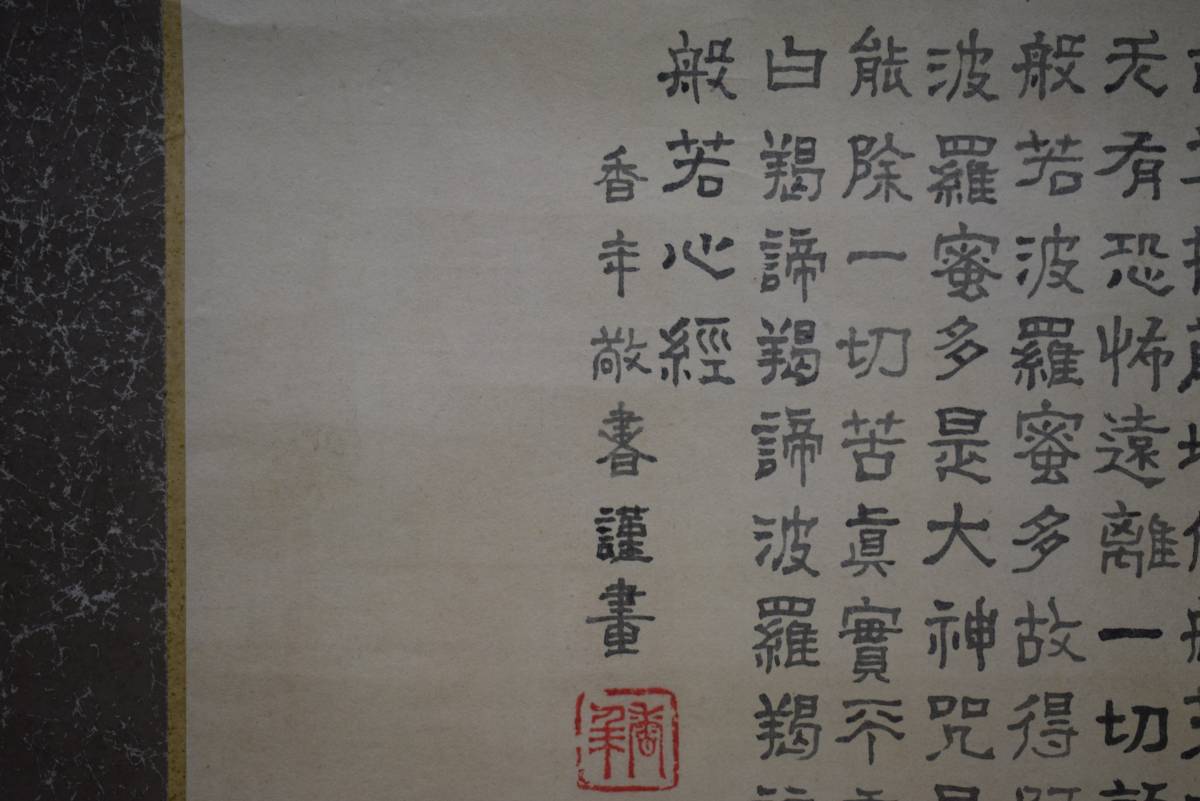 无有恐怖遠離一切
般若波羅蜜多故得
波羅蜜多是大神咒
能除一切苦真實不
白羯諦羯諦波羅羯
般若心經
香年敬書謹畫
香年